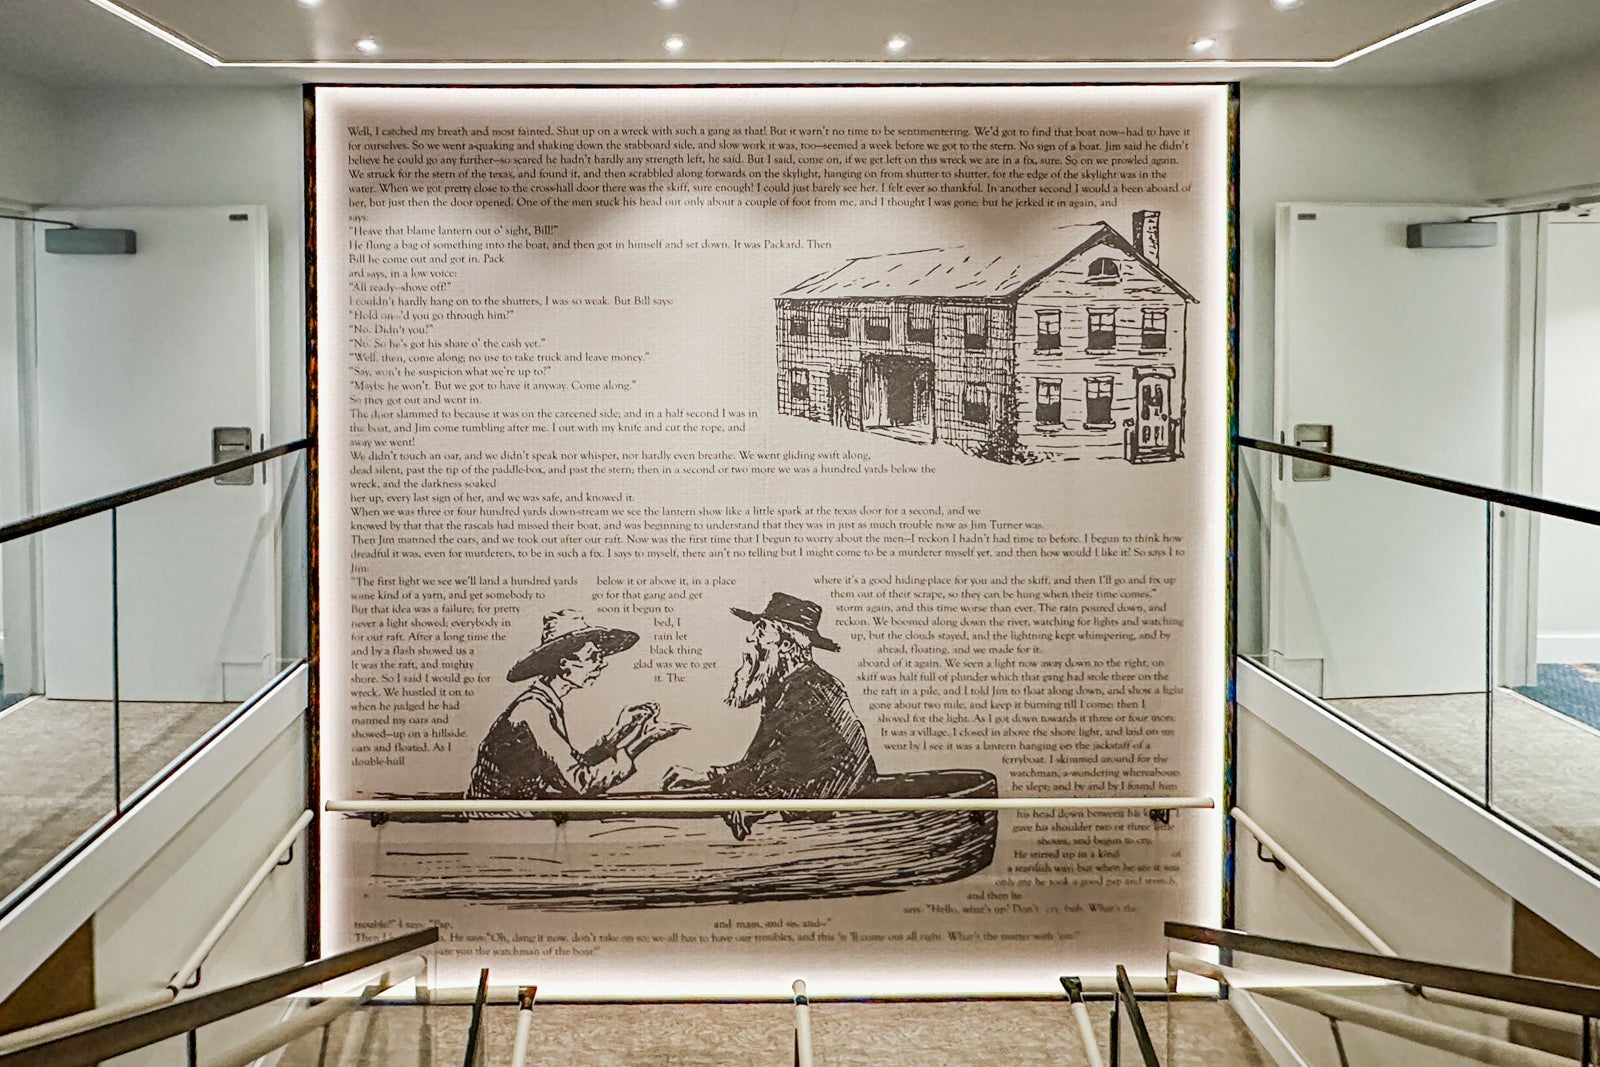 Well, I catched my breath and most fainted. Shut up on a wreck with such a gang as that! But it warn't no time to be sentimentering. We'd got to find that boat now—had to have it
for ourselves. So we went a-quaking and shaking down the stabboard side, and slow work it was, too—seemed a week before we got to the stern. No sign of a boat. Jim said he didn't
believe he could go any further—so scared he hadn't hardly any strength left, he said. But I said, come on, if we get left on this wreck we are in a fix, sure. So on we prowled again.
We struck for the stern of the texas, and found it, and then scrabbled along forwards on the skylight, hanging on from shutter to shutter, for the edge of the skylight was in the
water. When we got pretty close to the cross-hall door there was the skiff, sure enough! I could just barely see her. I felt ever so thankful. In another second I would a been aboard of
her, but just then the door opened. One of the men stuck his head out only about a couple of foot from me, and I thought I was gone; but he jerked it in again, and
says:
"Heave that blame lantern out o' sight, Bill!"
He flung a bag of something into the boat, and then got in himself and set down. It was Packard. Then
Bill he come out and got in. Pack
ard says, in a low voice:
"All ready—shove off!"
I couldn't hardly hang on to the shutters, I was so weak. But Bill says:
"Hold on—'d you go through him?"
"No. Didn't you?"
"No. So he's got his share o' the cash yet."
"Well, then, come along; no use to take truck and leave money."
"Say, won't he suspicion what we're up to?"
"Maybe he won't. But we got to have it anyway. Come along."
So they got out and went in.
The door slammed to because it was on the careened side; and in a half second I was in
the boat, and Jim come tumbling after me. I out with my knife and cut the rope, and
away we went!
We didn't touch an oar, and we didn't speak nor whisper, nor hardly even breathe. We went gliding swift along,
dead silent, past the tip of the paddle-box, and past the stern; then in a second or two more we was a hundred yards below the
wreck, and the darkness soaked
her up, every last sign of her, and we was safe, and knowed it.
When we was three or four hundred yards down-stream we see the lantern show like a little spark at the texas door for a second, and we
knowed by that that the rascals had missed their boat, and was beginning to understand that they was in just as much trouble now as Jim Turner was.
Then Jim manned the oars, and we took out after our raft. Now was the first time that I begun to worry about the men—I reckon I hadn't had time to before. I begun to think how
dreadful it was, even for murderers, to be in such a fix. I says to myself, there ain't no telling but I might come to be a murderer myself yet, and then how would I like it? So says I to
Jim:
"The first light we see we'll land a hundred yards below it or above it, in a place where it's a good hiding-place for you and the skiff, and then I'll go and fix up
some kind of a yarn, and get somebody to go for that gang and get them out of their scrape, so they can be hung when their time comes."
But that idea was a failure; for pretty soon it begun to storm again, and this time worse than ever. The rain poured down, and
never a light showed; everybody in bed, I reckon. We boomed along down the river, watching for lights and watching
for our raft. After a long time the rain let up, but the clouds stayed, and the lightning kept whimpering, and by
and by a flash showed us a black thing ahead, floating, and we made for it.
It was the raft, and mighty glad was we to get aboard of it again. We seen a light now away down to the right, on
shore. So I said I would go for it. The skiff was half full of plunder which that gang had stole there on the
wreck. We hustled it on to the raft in a pile, and I told Jim to float along down, and show a light
when he judged he had gone about two mile, and keep it burning till I come; then I
manned my oars and shoved for the light. As I got down towards it three or four more
showed—up on a hillside. It was a village. I closed in above the shore light, and laid on my
oars and floated. As I went by I see it was a lantern hanging on the jackstaff of a
double-hull ferryboat. I skimmed around for the
watchman, a-wondering whereabouts
he slept; and by and by I found him
his head down between his
gave his shoulder two or three little
shoves, and begun to cry.
He stirred up in a kind of
a startlish way; but when he see it was
only me he took a good gap and stretch,
and then he
says: "Hello, what's up? Don't cry, bub. What's the
trouble?" I says: "Pap, and mam, and sis, and—"
Then I He says: "Oh, dang it now, don't take on so; we all has to have our troubles, and this 'n 'll come out all right. What's the matter with 'em?"
are you the watchman of the boat?"